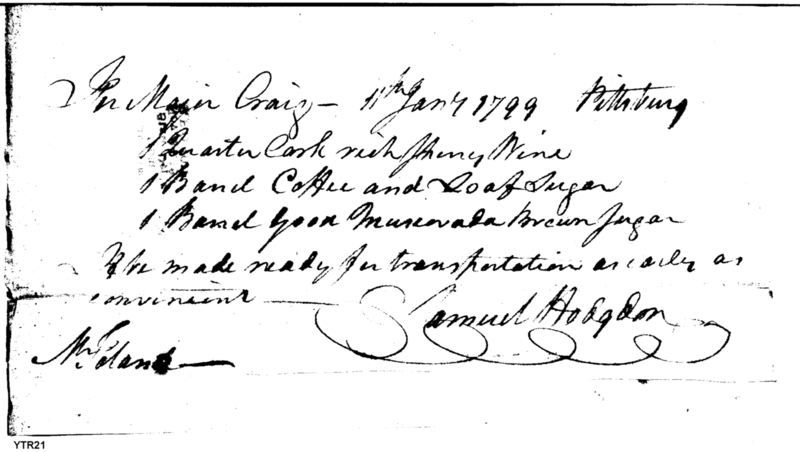 For Major Craig — 11th Jany 1799 Pittsburg
1 Quarter Cask rich Sherry Wine
1 Barrel Coffee and Loaf Sugar
1 Barrel Good Muscovada Brown Sugar
To be made ready for transportation as early as
convenient —
Samuel Hodgdon
Mr
YTR21